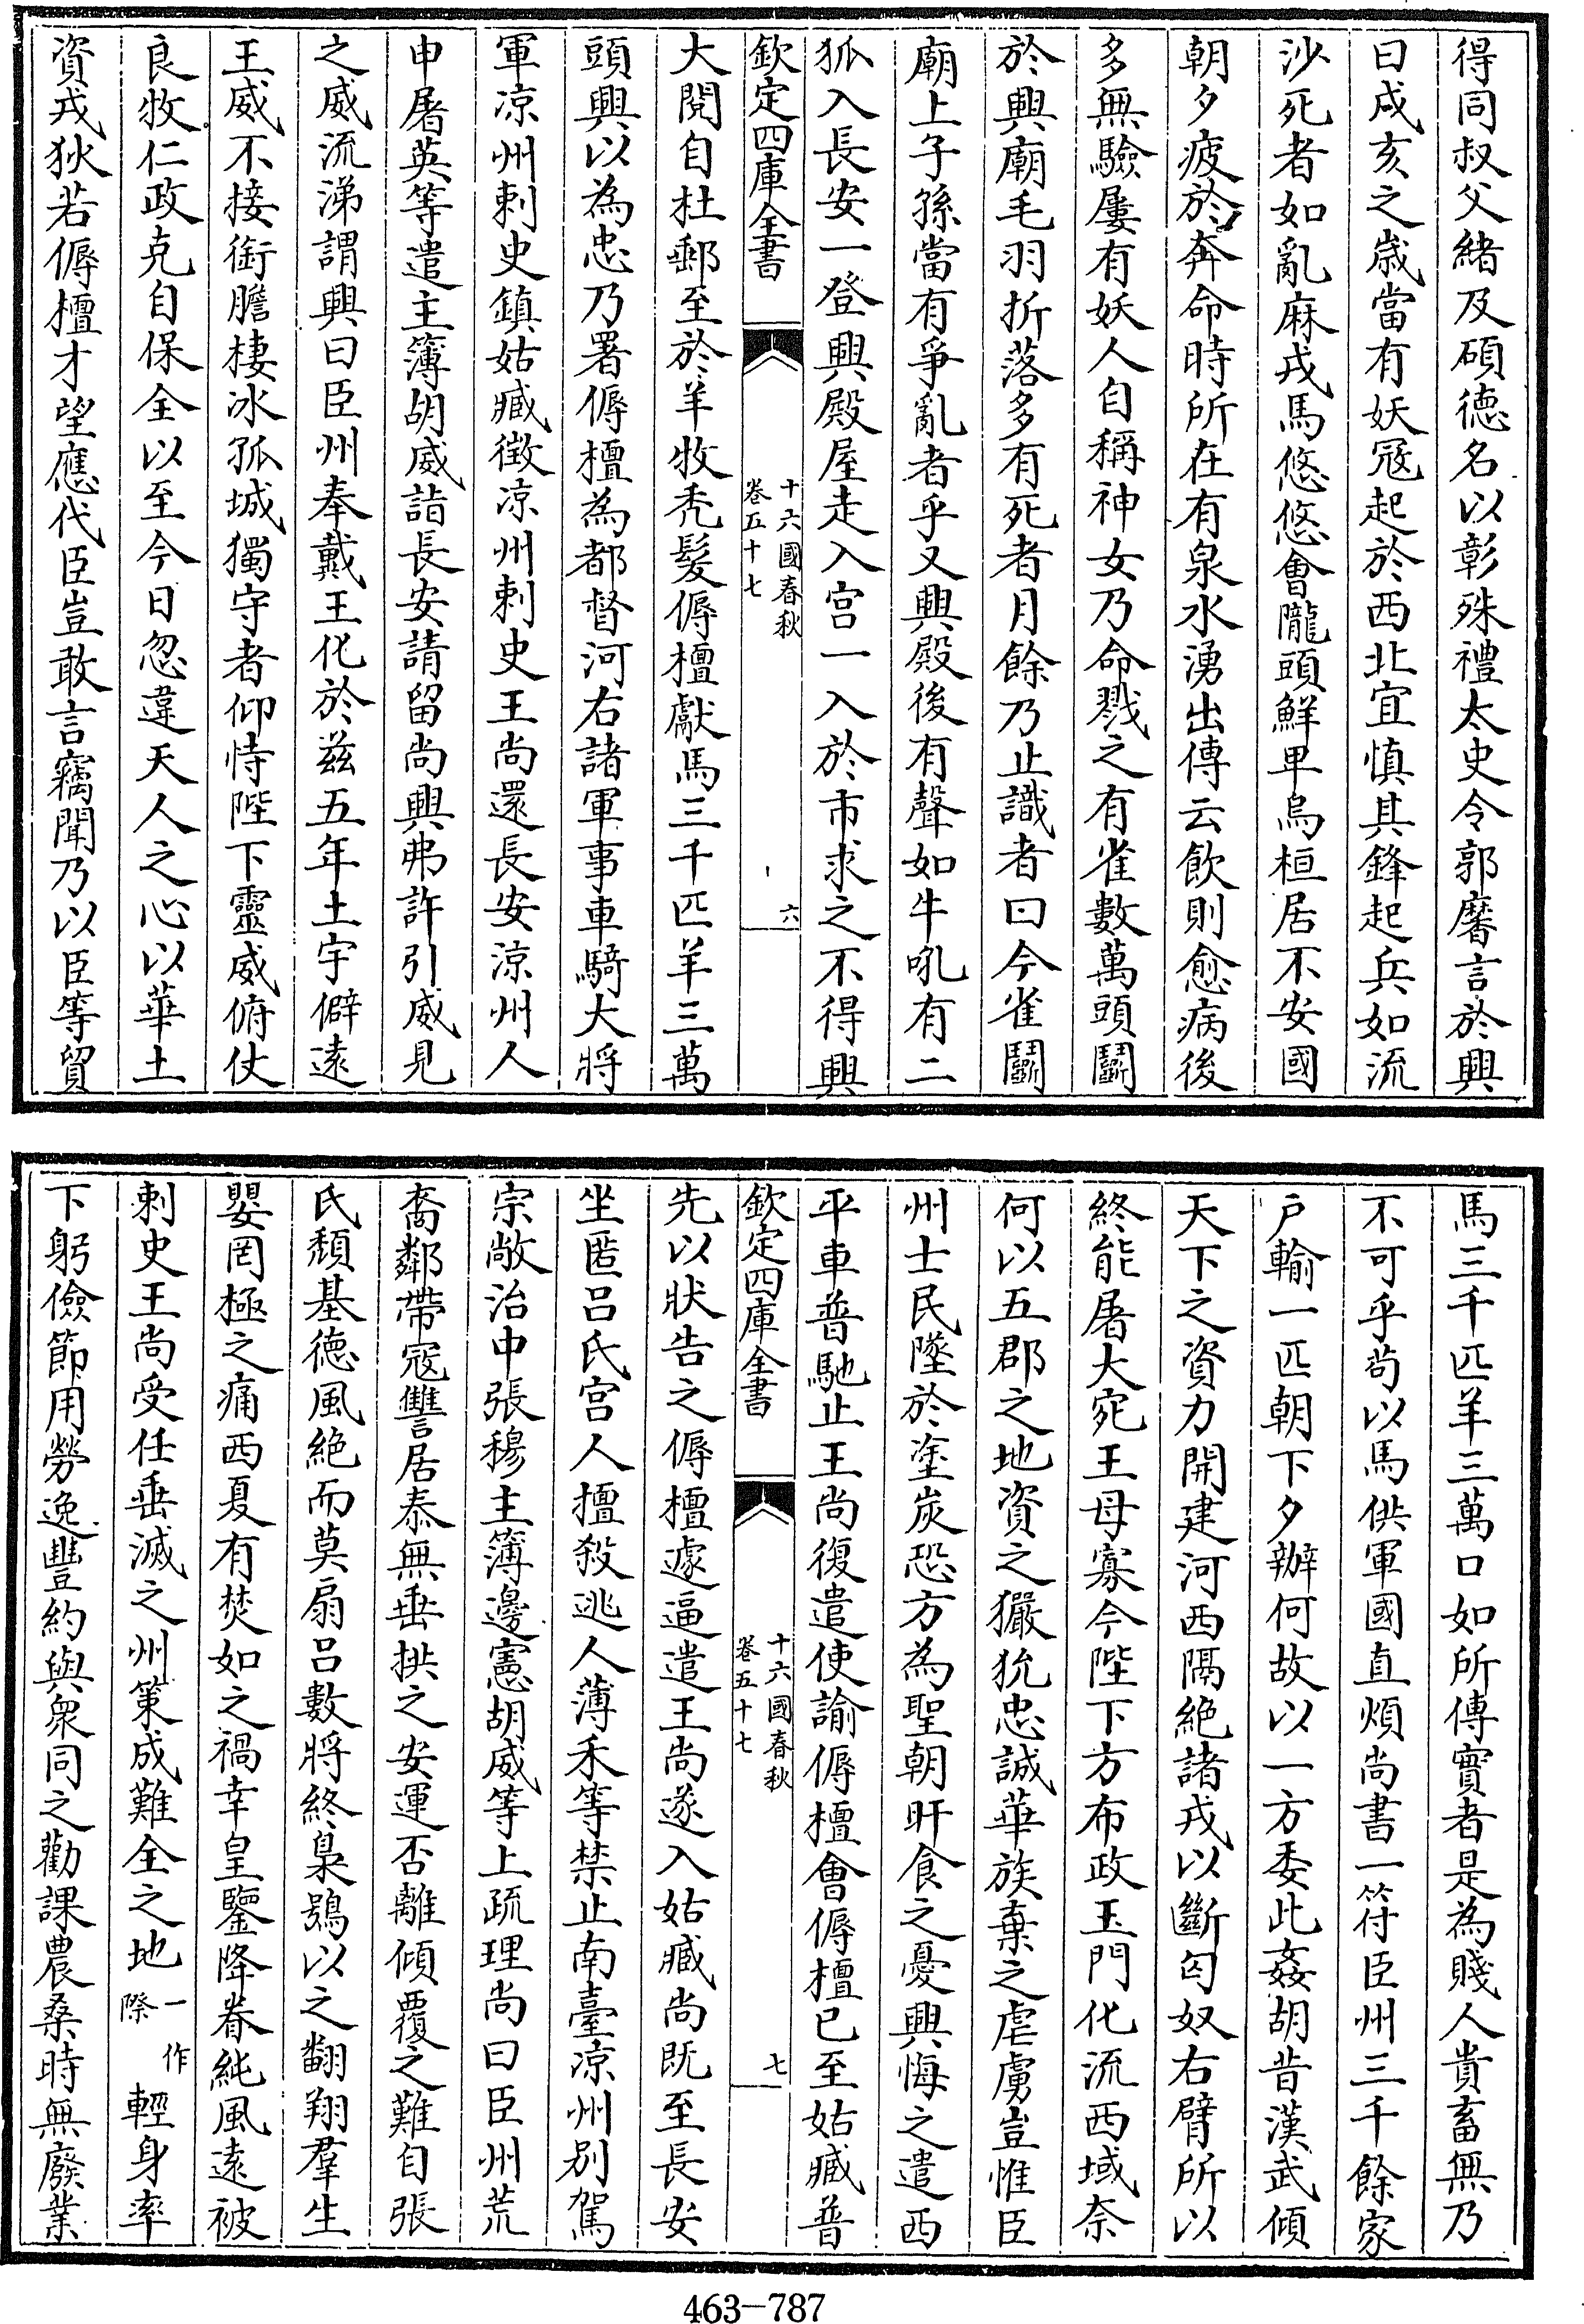 得同叔父緒及碩徳名以彰殊禮太史令郭黁言於興
曰戌亥之歲當有妖冦起於西北宜慎其鋒起兵如流
沙死者如亂麻戎馬悠悠㑹隴頭鮮卑烏桓居不安國
朝夕疲於奔命時所在有泉水湧出傳云飲則愈病後
多無驗屢有妖人自稱神女乃命戮之有雀數萬頭鬬
於興廟毛羽折落多有死者月餘乃止識者曰今雀鬬
廟上子孫當有爭亂者乎又興殿後有聲如牛吼有二
狐入長安一登興殿屋走入宫一入於市求之不得興
欽定四庫全書
十六國春秋
卷五十七
六
大閱自杜郵至於羊牧秃髮傉檀獻馬三千匹羊三萬
頭興以為忠乃署傉檀為都督河右諸軍事車騎大將
軍凉州刺史鎮姑臧徴凉州刺史王尚還長安涼州人
申屠英等遣主簿胡威詣長安請留尚興弗許引威見
之威流涕謂興曰臣州奉戴王化於兹五年土宇僻逺
王威不接銜膽棲冰孤城獨守者仰恃陛下靈威俯仗
良牧仁政克自保全以至今日忽違天人之心以華土
資戎狄若傉檀才望應代臣豈敢言竊聞乃以臣等貿
馬三千匹羊三萬口如所傳實者是為賤人貴畜無乃
不可乎茍以馬供軍國直煩尚書一符臣州三千餘家
戸輸一匹朝下夕辦何故以一方委此姦胡昔漢武傾
天下之資力開建河西隔絶諸戎以斷匈奴右臂所以
終能屠大宛王母寡今陛下方布政玉門化流西域奈
何以五郡之地資之玁狁忠誠華族棄之虐虜豈惟臣
州士民墜於塗炭恐方為聖朝旰食之憂興悔之遣西
平車普馳止王尚復遣使諭傉檀㑹傉檀已至姑臧普
欽定四庫全書
十六國春秋
卷五十七
七
先以狀告之傉檀遽逼遣王尚遂入姑臧尚既至長安
坐匿吕氏宫人擅殺逃人薄禾等禁止南臺凉州别駕
宗敞治中張穆主簿邊憲胡威等上疏理尚曰臣州荒
裔鄰帶寇讐居泰無垂拱之安運否離傾覆之難自張
氏頹基徳風絶而莫扇吕數將終梟鴞以之翻翔羣生
嬰罔極之痛西夏有焚如之禍幸皇鑒降眷純風逺被
刺史王尚受任垂滅之州策成難全之地一作際輕身率
下躬儉節用勞逸豐約與衆同之勸課農桑時無廢業
463-787